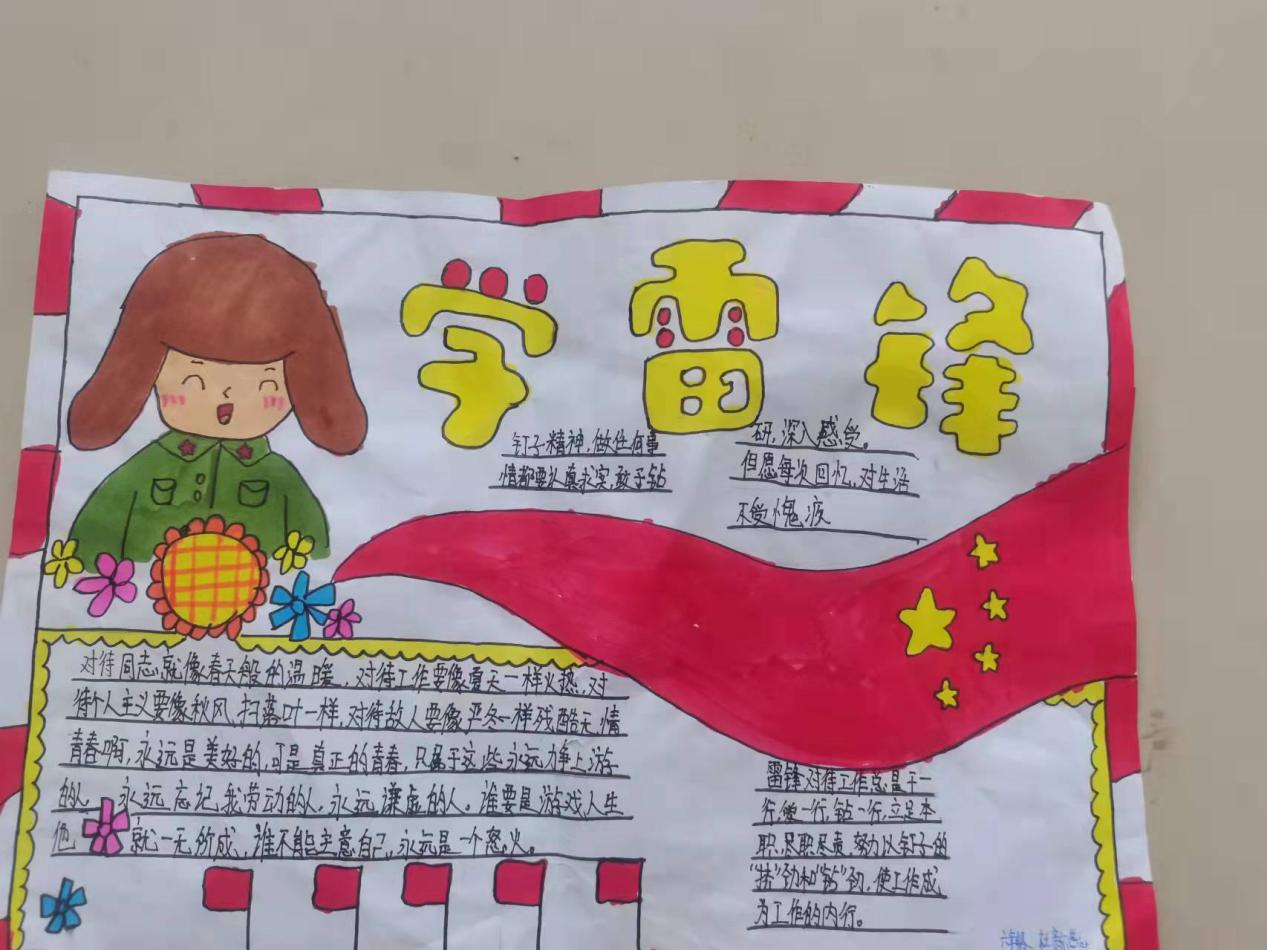 学雷锋
钉子精神,做任何事
情都要认真求实,敢于钻
研,深入感受。
但愿每次回忆,对生活
不受愧疚
对待同志就像春天般的温暖,对待工作要像夏天一样火热,对
待个人主义要像秋风、扫落叶一样,对待敌人要像严冬一样残酷无情
青春啊,永远是美好的,可是真正的青春,只属于这些永远力争上游
的人,永远忘记我劳动的人,永远谦虚的人。谁要是游戏人生
他就一无所成,谁不能主意自己,永远是一个怒火。
雷锋对待工作总是干一
行,爱一行,钻一行,立足本
职,尽职尽责,努力以钉子的
"挤"劲和"钻"劲,使工作成
为工作的内行。